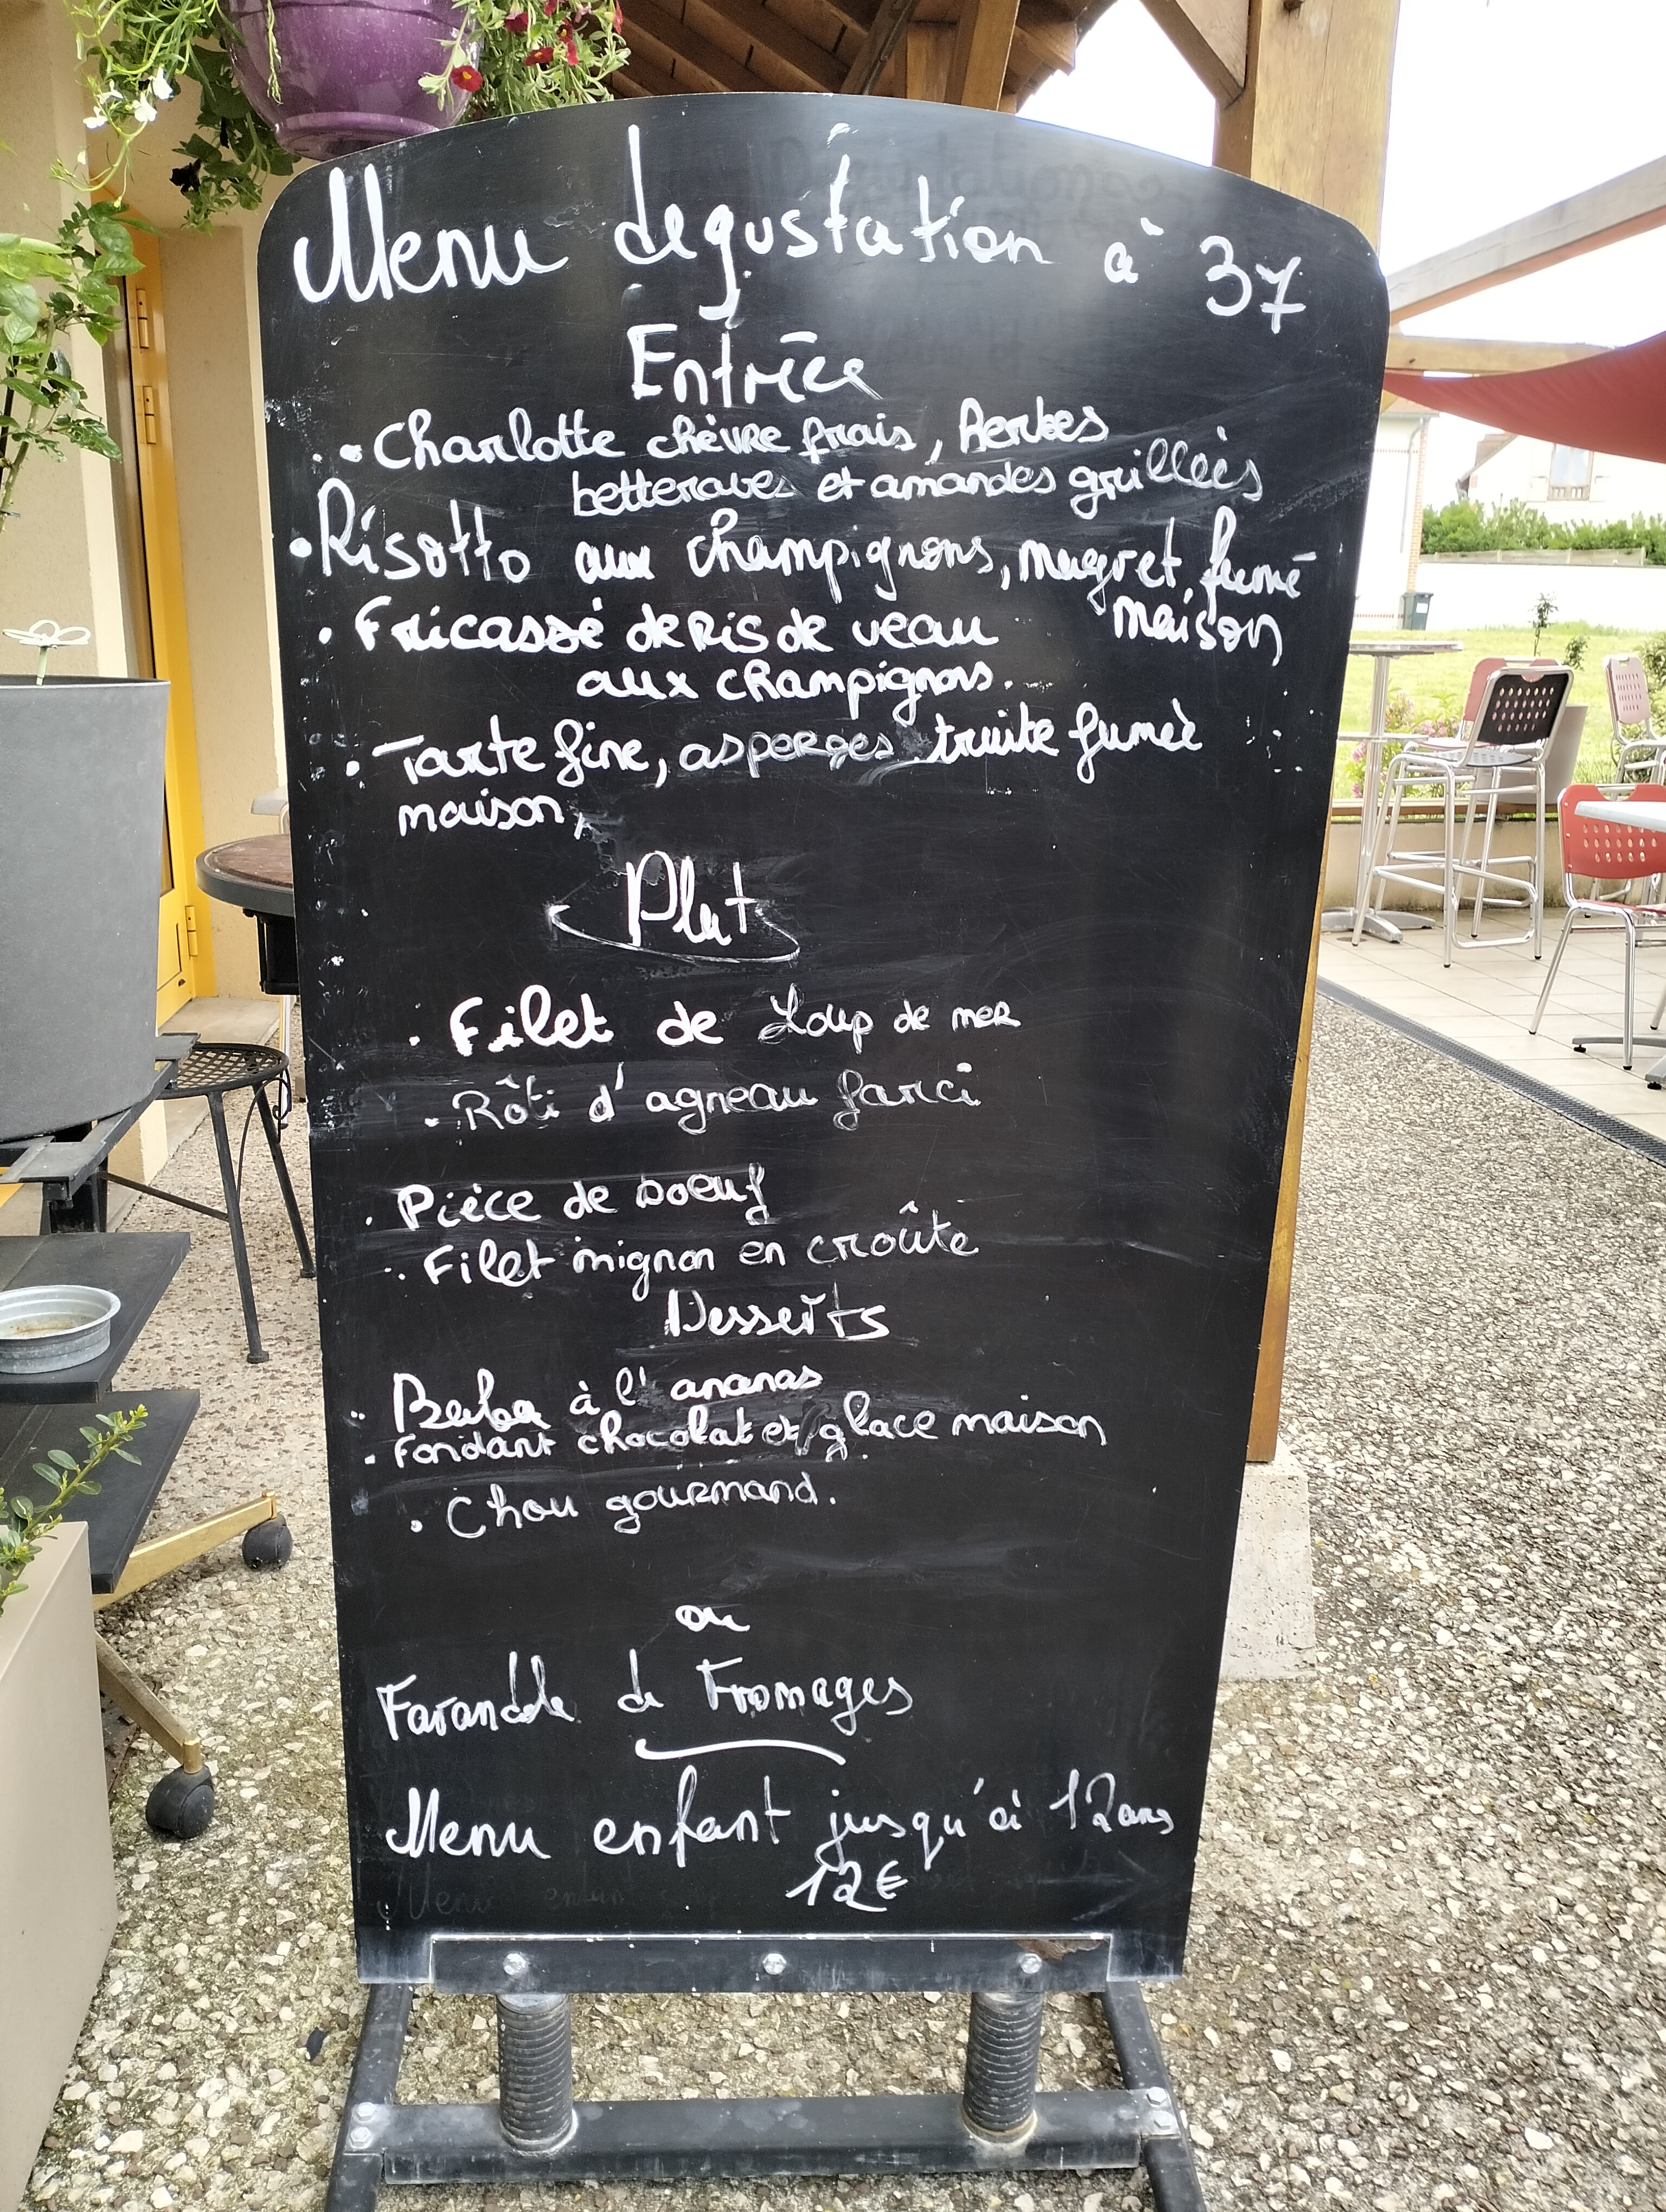 Menu dégustation à 37
Entrées
• Charlotte chèvre frais, herbes
betteraves et amandes grillées
• Risotto aux champignons, magret fumé
maison
• Fricassé de Ris de veau
aux champignons.
• Tarte fine, asperges truite fumée
maison,
Plat
• Filet de Loup de mer
• Rôti d'agneau farci
• Pièce de boeuf
• Filet mignon en croûte
Desserts
• Baba à l'ananas
• Fondant chocolat et glace maison
• Chou gourmand.
ou
Farandole de Fromages
Menu enfant jusqu'à 12 ans
12€